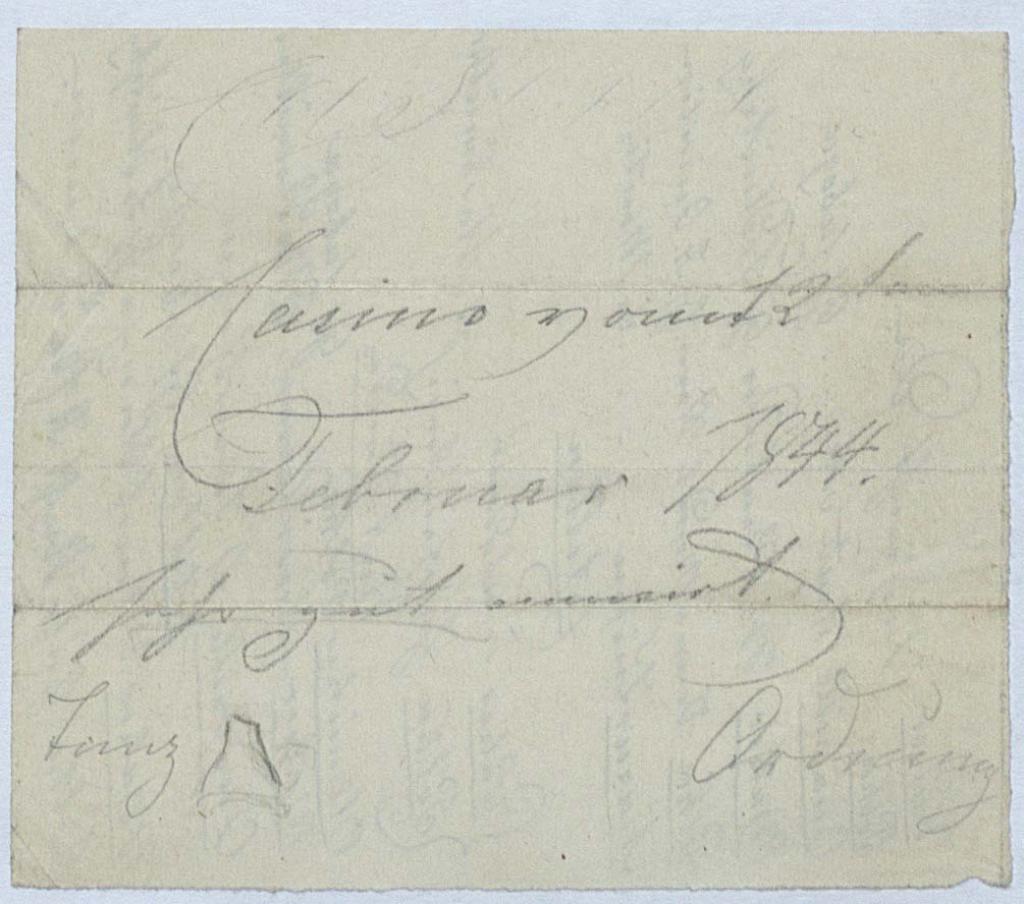 Casino vom 12ten
Februar 1844.
sehr gut amusirt.
Tanz Ordnung